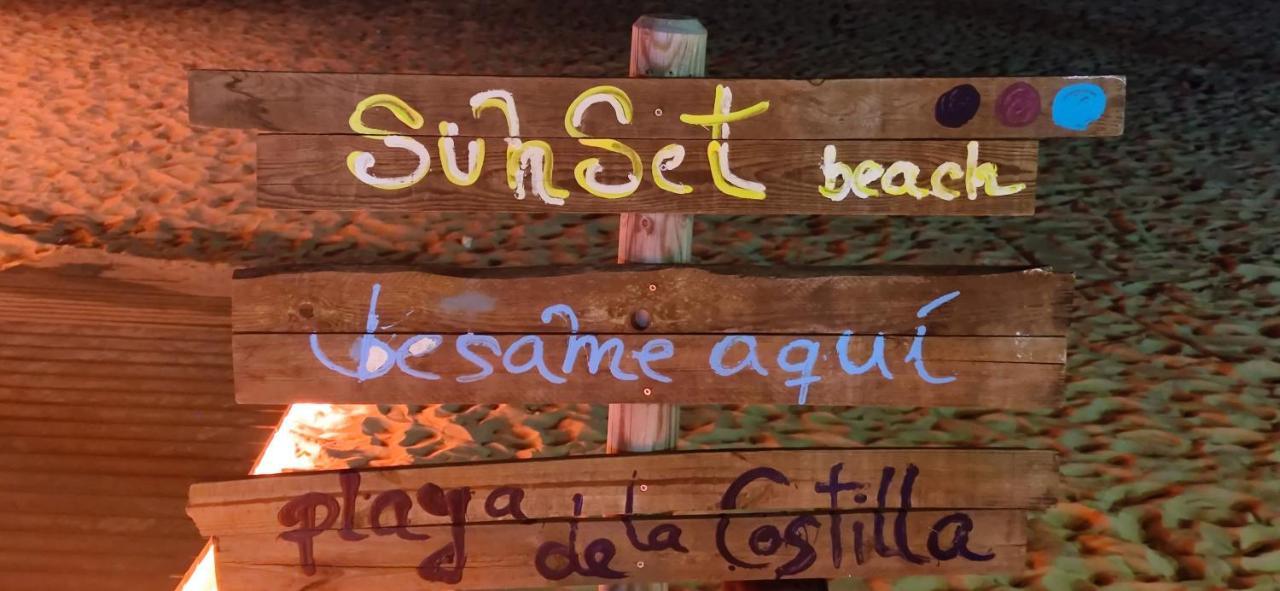 SunSet beach
besame aquí
playa de la Costilla